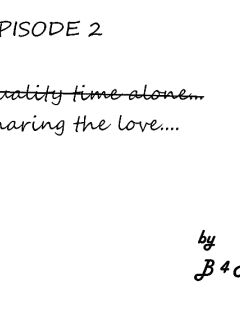 PISODE 2
uality time alone...
haring the love....
by
B4